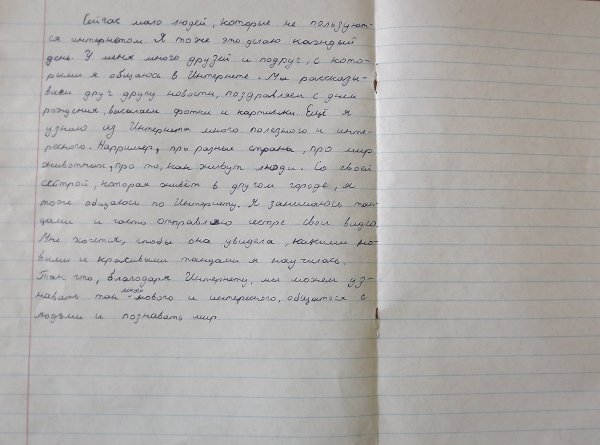 Сейчас мало людей, которые не пользуют-
ся интернетом. Я тоже это делаю каждый
день. У меня много друзей и подруг, с кото-
рыми я общаюсь в Интернете. Мы рассказы-
ваем друг другу новости, поздравляем с днём
рождения, высылаем фотки и картинки. Ещё я
узнаю из Интернета много полезного и инте-
ресного. Например, про разные страны, про мир
животных, про то, как живут люди. Со своей
сестрой, которая живёт в другом городе, я
тоже общаюсь по Интернету. Я занимаюсь тан-
цами и часто отправляю сестре свои видео.
Мне хочется, чтобы она увидела, какими но-
выми и красивыми танцами я научилась.
Так что, благодаря Интернету, мы можем уз-
навать так много нового и интересного, общаться с
людьми и познавать мир.